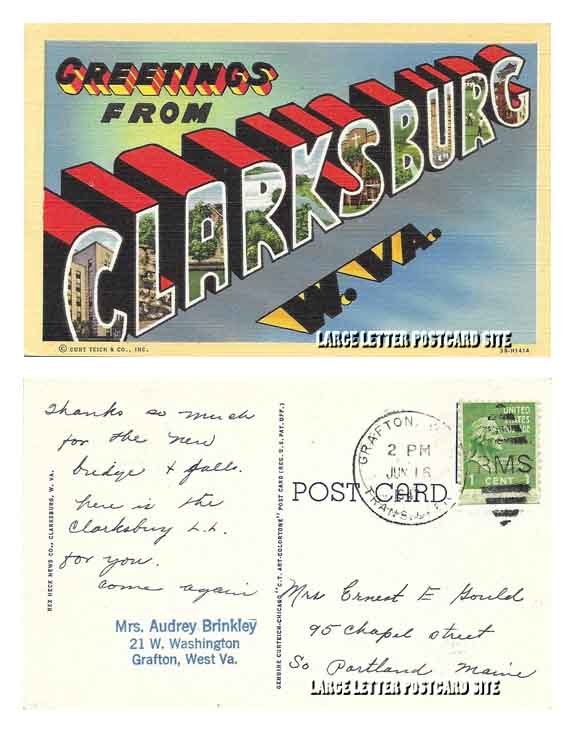 GREETINGS
FROM
CLARKSBURG
W. VA.
LARGE LETTER POSTCARD SITE
© CURT TEICH & CO., INC.
3B-H1414
Thanks so much
for the new
bridge & falls.
here is the
Clarksburg L.L.
for you.
come again
REX HECK NEWS CO., CLARKSBURG, W. VA.
Mrs. Audrey Brinkley
21 W. Washington
Grafton, West Va.
GENUINE CURTEICH-CHICAGO "C.T. ART-COLORTONE" POST CARD (REG. U.S. PAT. OFF.)
POST CARD
GRAFTON,
2 PM
JUN 16
TRANS.
RMS
UNITED
STATES
1 CENT 1
Mrs Ernest E Gould
95 Chapel street
So Portland Maine
LARGE LETTER POSTCARD SITE